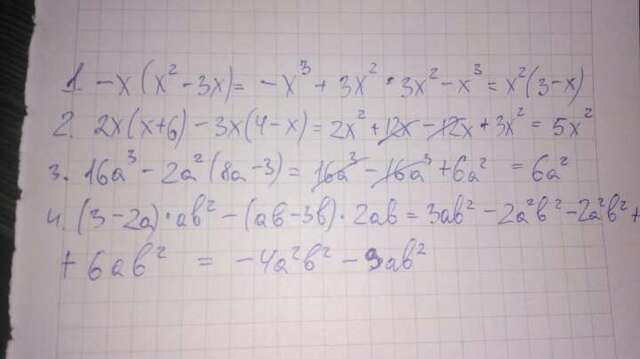 1. -x(x² - 3x) = -x³ + 3x² · 3x² - x³ = x²(3-x)
2. 2x(x+6) - 3x(4-x) = 2x² + 12x - 12x + 3x² = 5x²
3. 16a³ - 2a²(8a-3) = 16a³ - 16a³ + 6a² = 6a²
4. (3-2a)·ab² - (ab-3b)·2ab = 3ab² - 2a²b² - 2a²b² +
+ 6ab² = -4a²b² - 9ab²